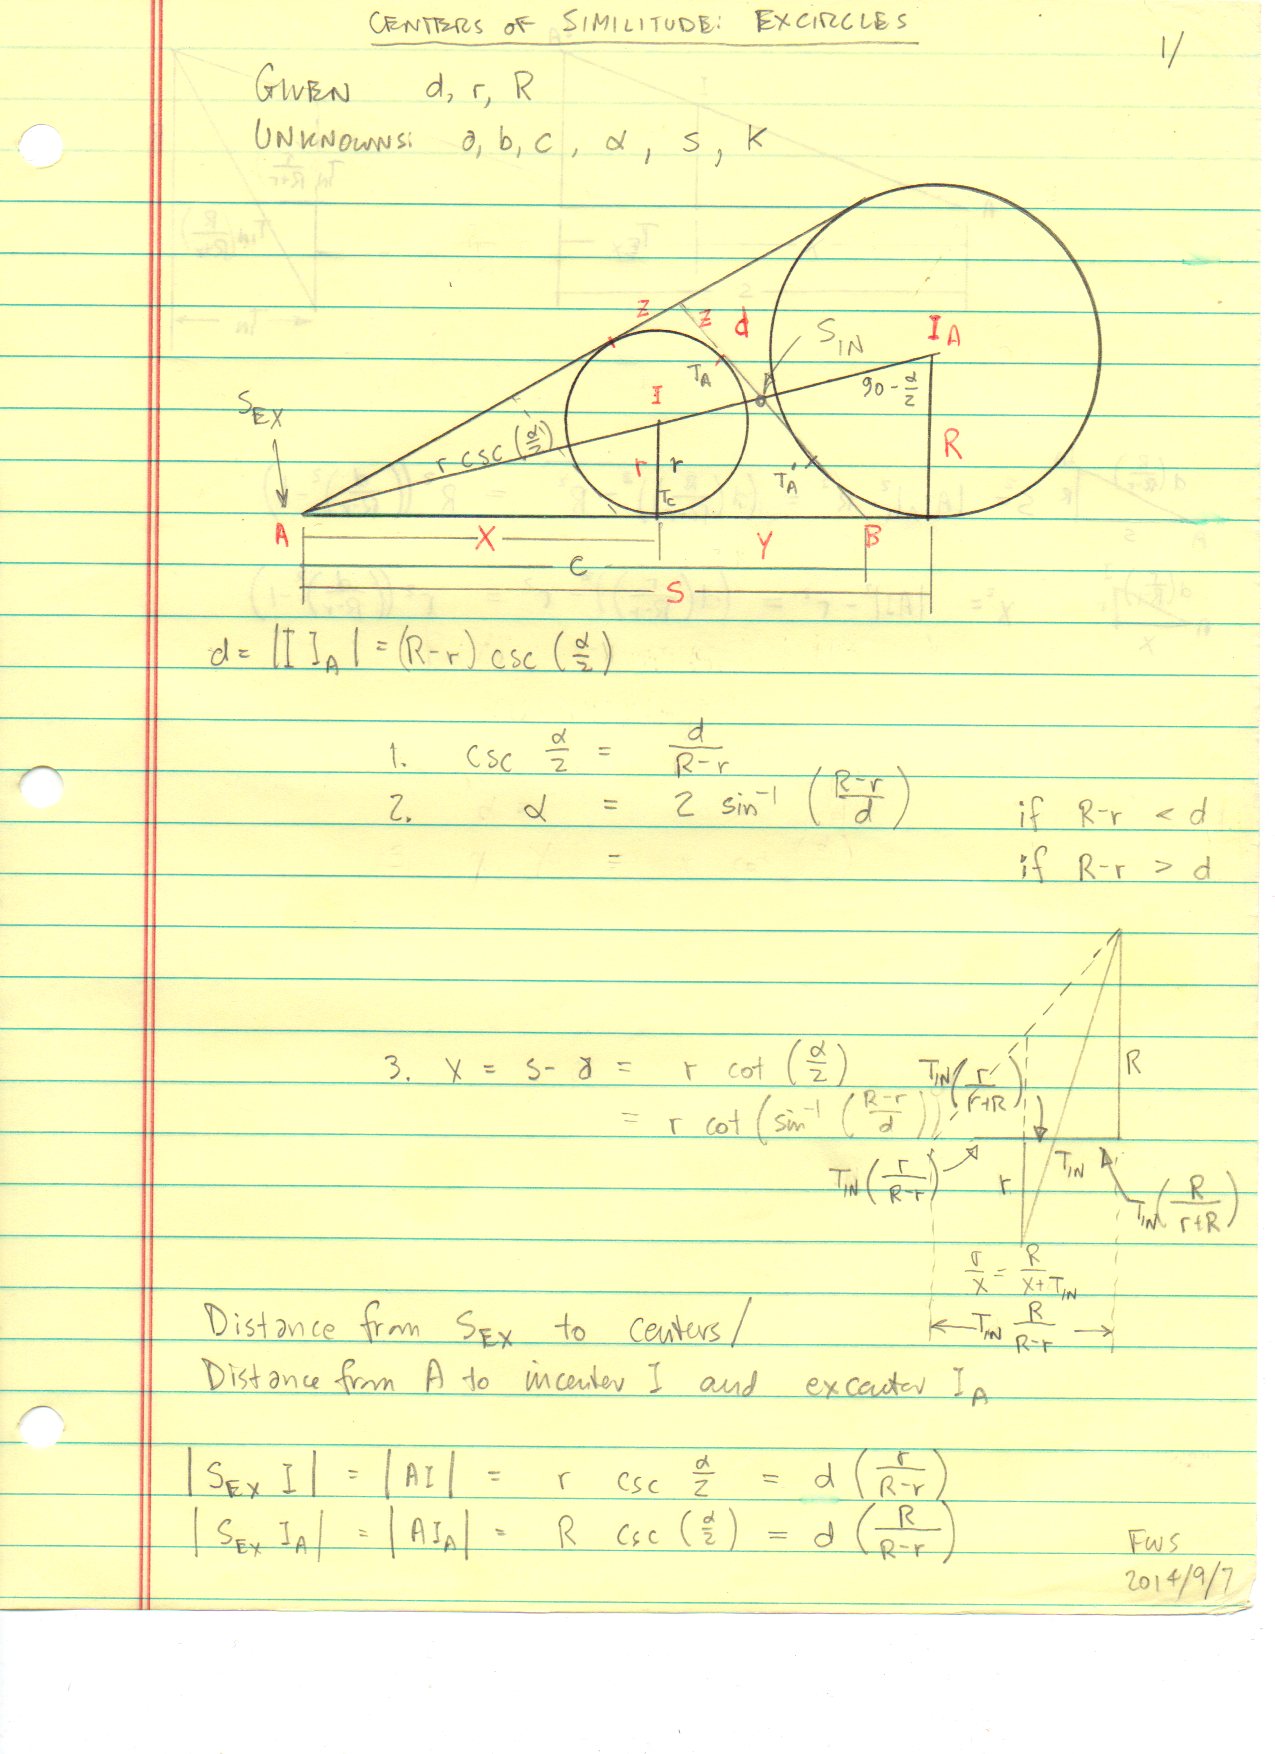 CENTERS OF SIMILITUDE: EXCIRCLES
1/
GIVEN d, r, R
UNKNOWNS: a, b, c, α, s, K
Z
Z
d
S_IN
I_A
T_A
90 - α/2
I
S_EX
r csc (α/2)
R
r
r
T_A'
T_C
A
X
Y
B
C
S
d = |I I_A| = (R-r) csc (α/2)
1. csc α/2 = d/(R-r)
2. α = 2 sin⁻¹ ((R-r)/d) if R-r < d
= if R-r > d
3. X = s - a = r cot (α/2)
= r cot (sin⁻¹ ((R-r)/d))
T_IN (r/(r+R))
R
T_IN (r/(R-r))
r
T_IN
T_IN (R/(r+R))
r/X = R/(X+T_IN)
T_IN R/(R-r)
Distance from S_EX to centers/
Distance from A to incenter I and excenter I_A
|S_EX I| = |AI| = r csc α/2 = d (r/(R-r))
|S_EX I_A| = |AI_A| = R csc (α/2) = d (R/(R-r))
FWS
2014/9/7